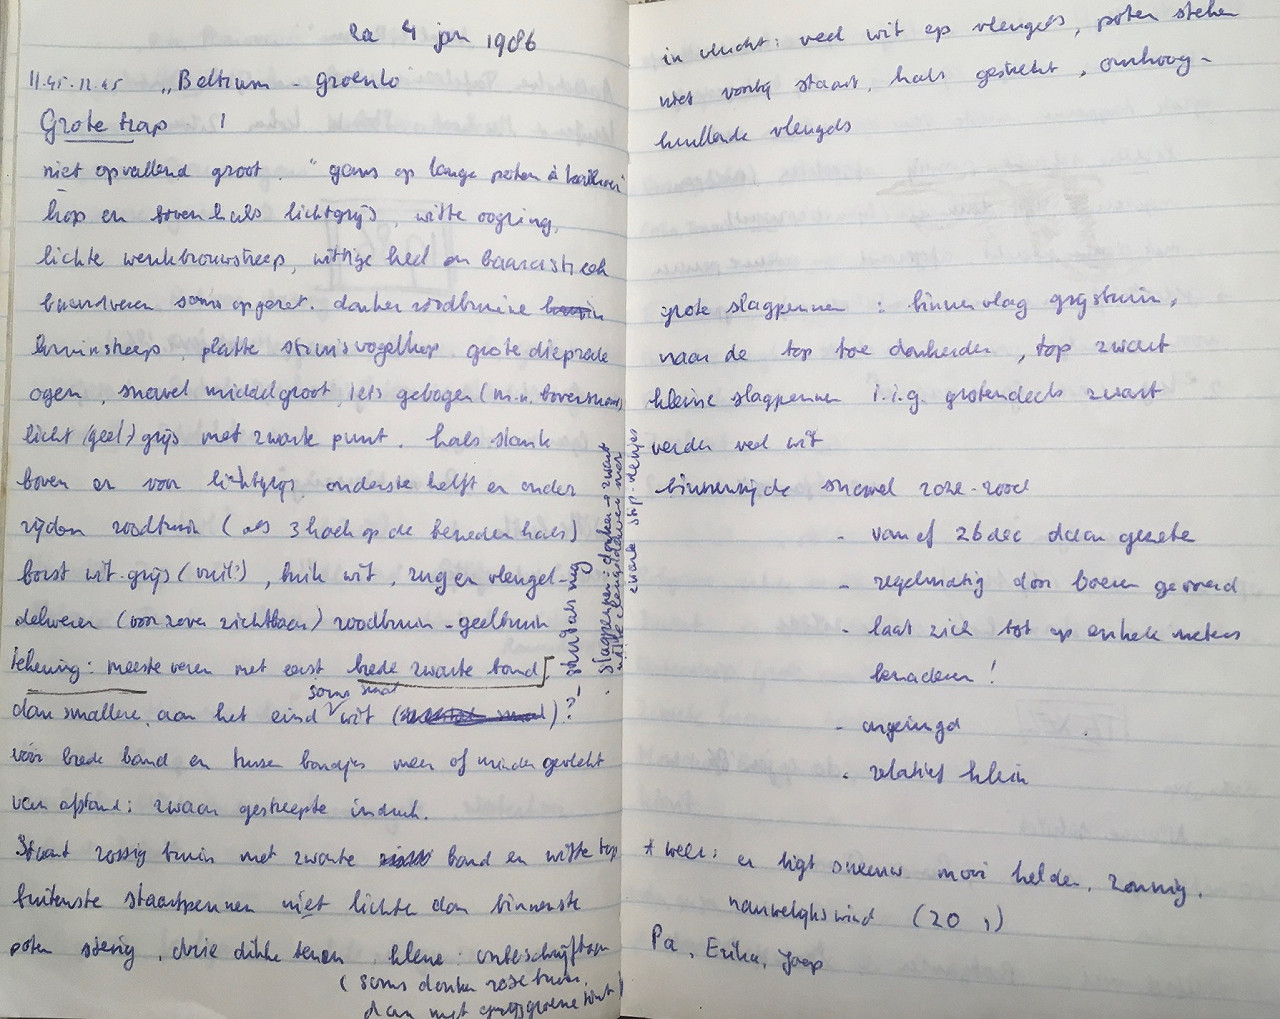 za 4 jan 1986
11.45-12.45 „Beltrum - Groenlo
Grote trap 1
niet opvallend groot. "gans op lange poten à
kop en bovenhals lichtgrijs, witte oogring,
lichte wenkbrouwstreep, wittige keel en baardstreek
baardveren soms opgezet. donker roodbruine
kruinstreep, platte struisvogelkop grote dieprode
ogen, snavel middelgroot, iets gebogen (m.n. bovensnavel)
licht (geel) grijs met zwarte punt. hals slank
boven en voor lichtgrijs onderste helft en onder
zijden roodbruin (als 3hoek op de beneden hals)
borst wit-grijs (vuil?), buik wit, rug en vleugel-
dekveren (voor zover zichtbaar) roodbruin - geelbruin
tekening: meeste veren met eerst brede zwarte band
dan smallere, aan het eind soms smal wit ( )?
vóór brede band en tussen bandjes meer of minder gevlekt
van afstand: zwaar gestreepte indruk.
Staart rossig bruin met zwarte band en witte top
buitenste staartpennen niet lichter dan binnenste
poten stevig, drie dikke tenen kleur: onbeschrijfbaar
(soms donker roze bruin,
dan met grijsgroene tint)
stuit als rug
slagpennen: donker → zwart
witte vleugeldekveren met
zwarte stip-vlekjes
in vlucht: veel wit op vleugels, poten steken
niet voorbij staart, hals gestrekt, omhoog-
krullende vleugels
grote slagpennen: binnenvlag grijsbruin,
naar de top toe donkerder, top zwart
kleine slagpennen i.i.g. grotendeels zwart
verder veel wit
binnenzijde snavel roze-rood
- vanaf 26 dec daar gezeten
- regelmatig door boeren gevoerd
- laat zich tot op enkele meters
benaderen!
- ongeringd
- relatief klein
* weer: er ligt sneeuw mooi helder, zonnig.
nauwelijks wind (20 , )
Pa, Erika, Jaap